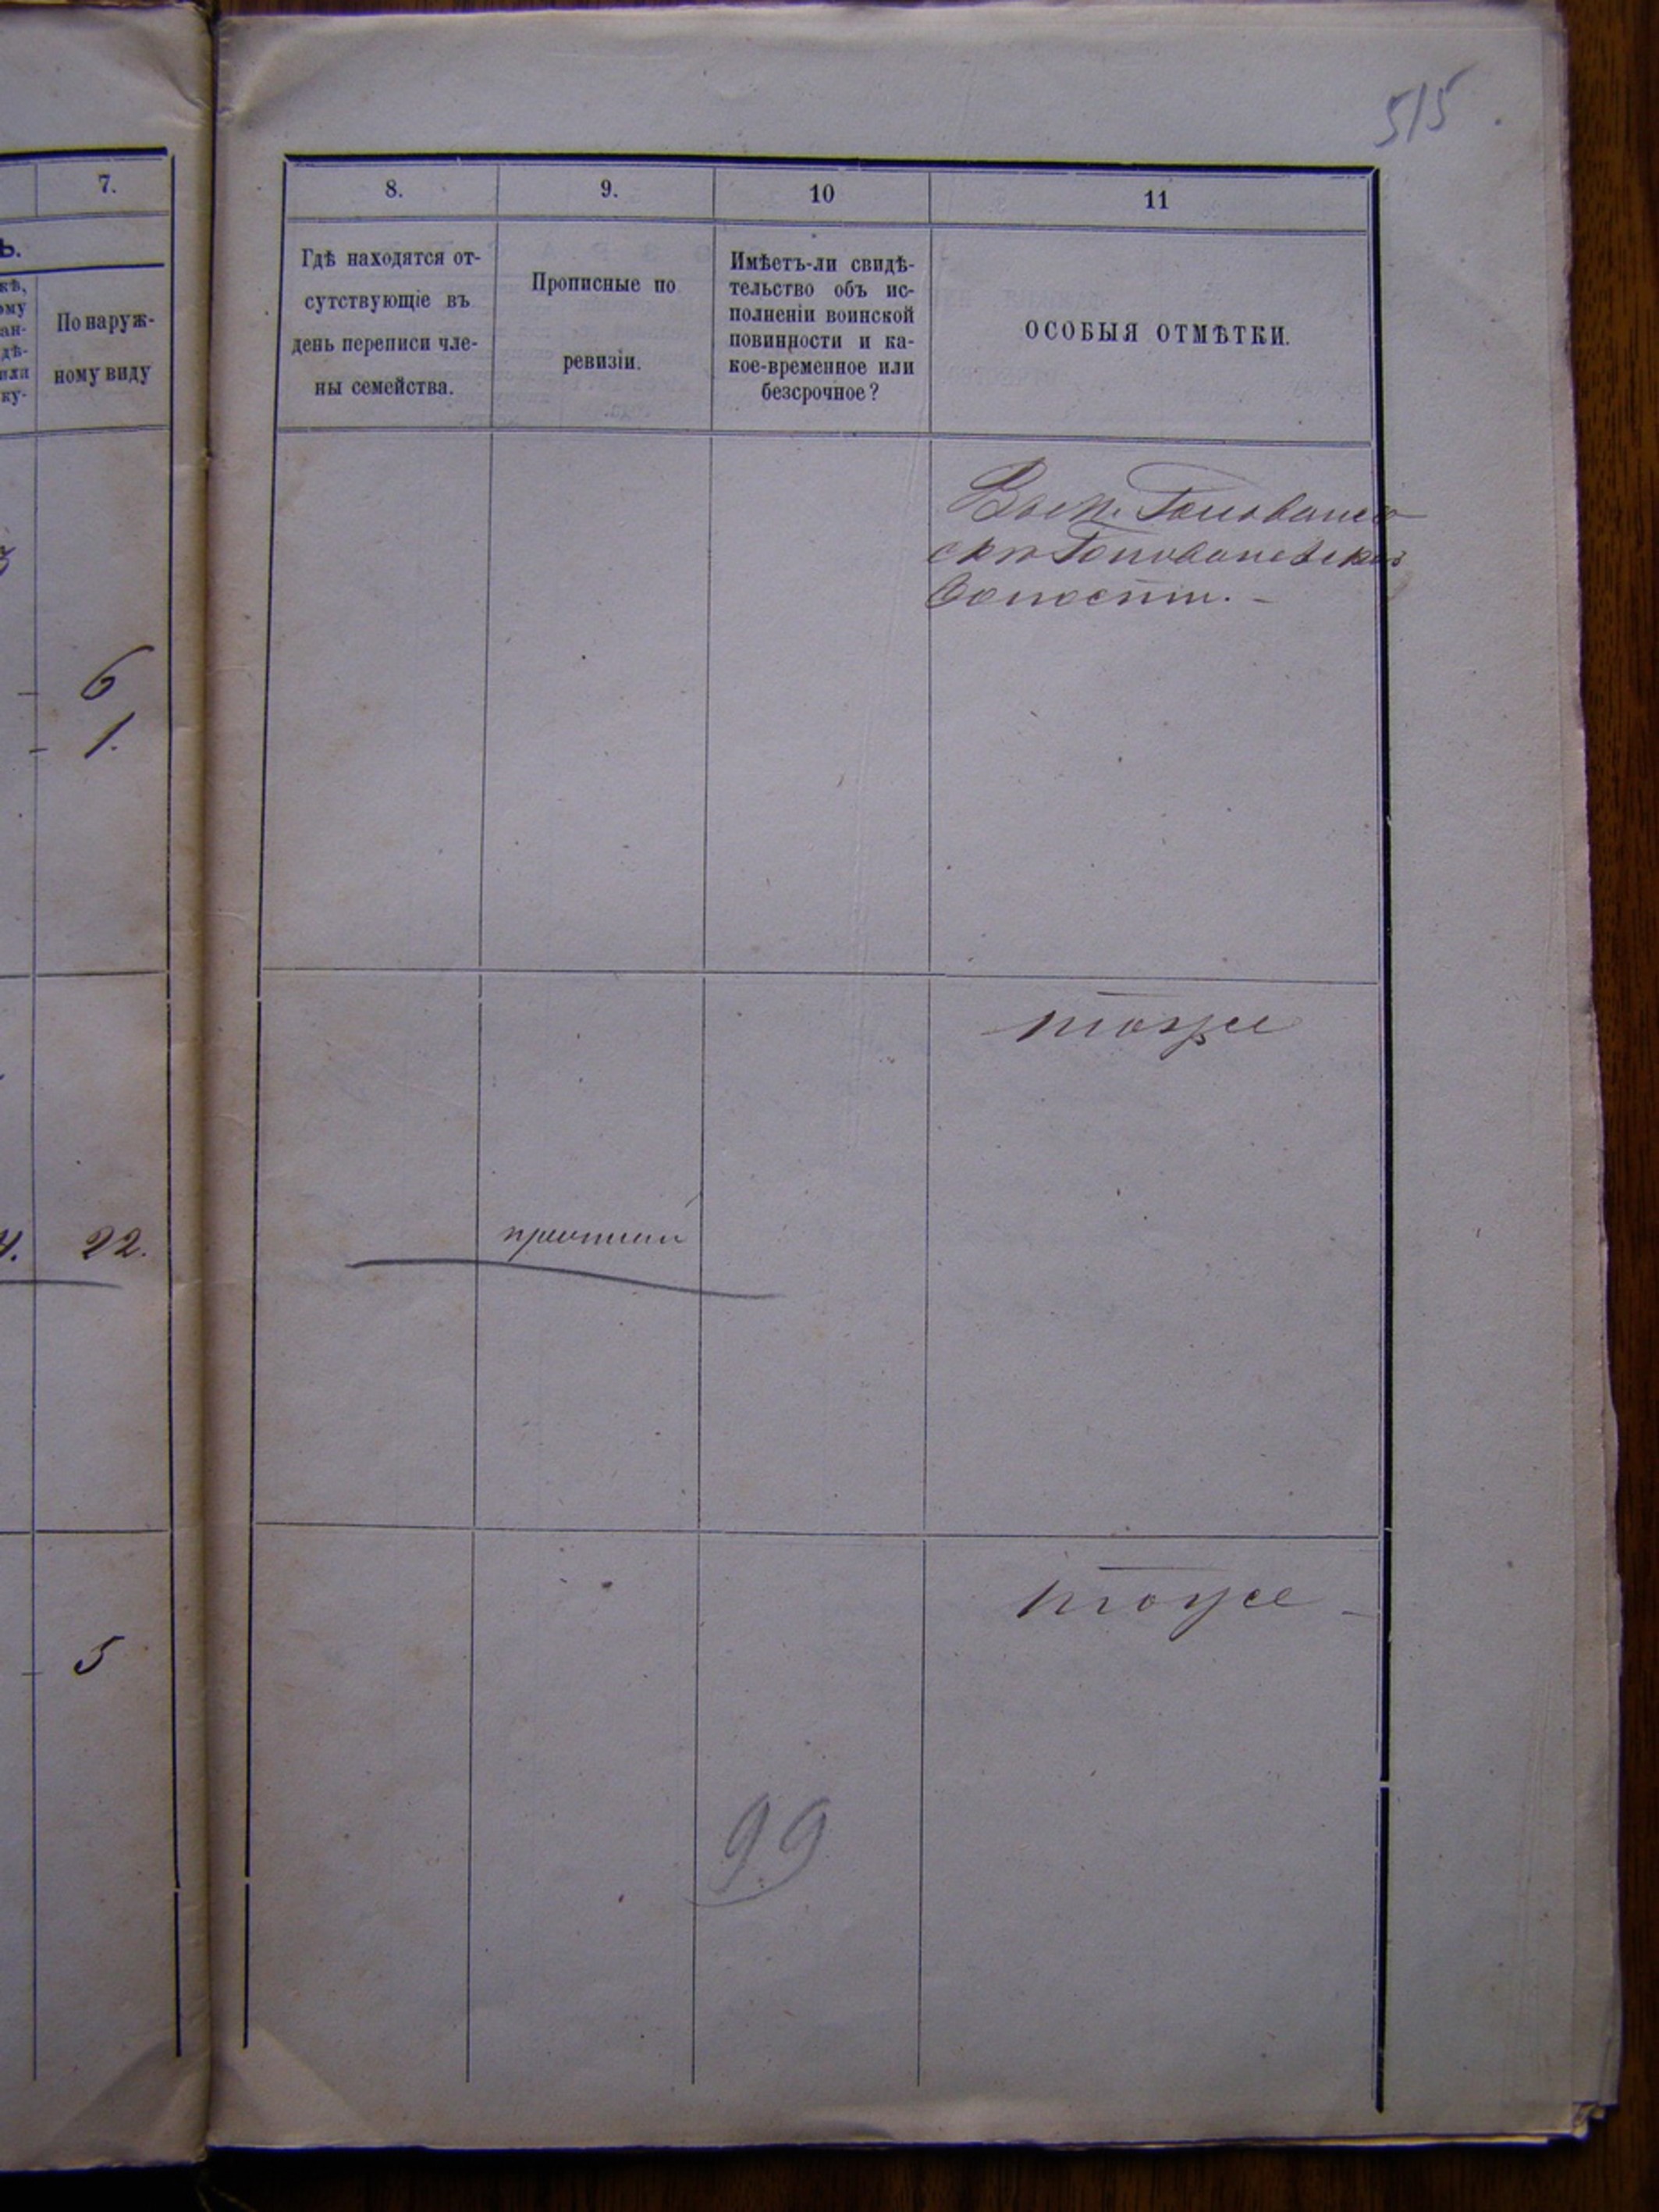 515
7.
ь.
кѣ,
ому
ан-
дѣ-
или
ку-
По наруж-
ному виду
6
1.
4. 22.
5
8.
9.
10
11
Гдѣ находятся от-
сутствующіе въ
день переписи чле-
ны семейства.
Прописные по
ревизіи.
Имѣетъ-ли свидѣ-
тельство объ ис-
полненіи воинской
повинности и ка-
кое-временное или
безсрочное?
ОСОБЫЯ ОТМѢТКИ.
Въ м. Голованев
скѣ Голованевской
волости. -
тоже
тоже -
99